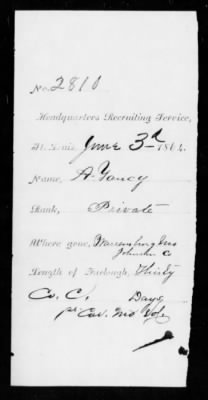 No. 2810
Headquarters Recruiting Service,
St. Louis, June 3d 1864.
Name, A. Yancy
Rank, Private
Where gone, Warrensburg Mo
Johnson Co
Length of Furlough, Thirty
Co. C. Days
Cav. Mo Vols